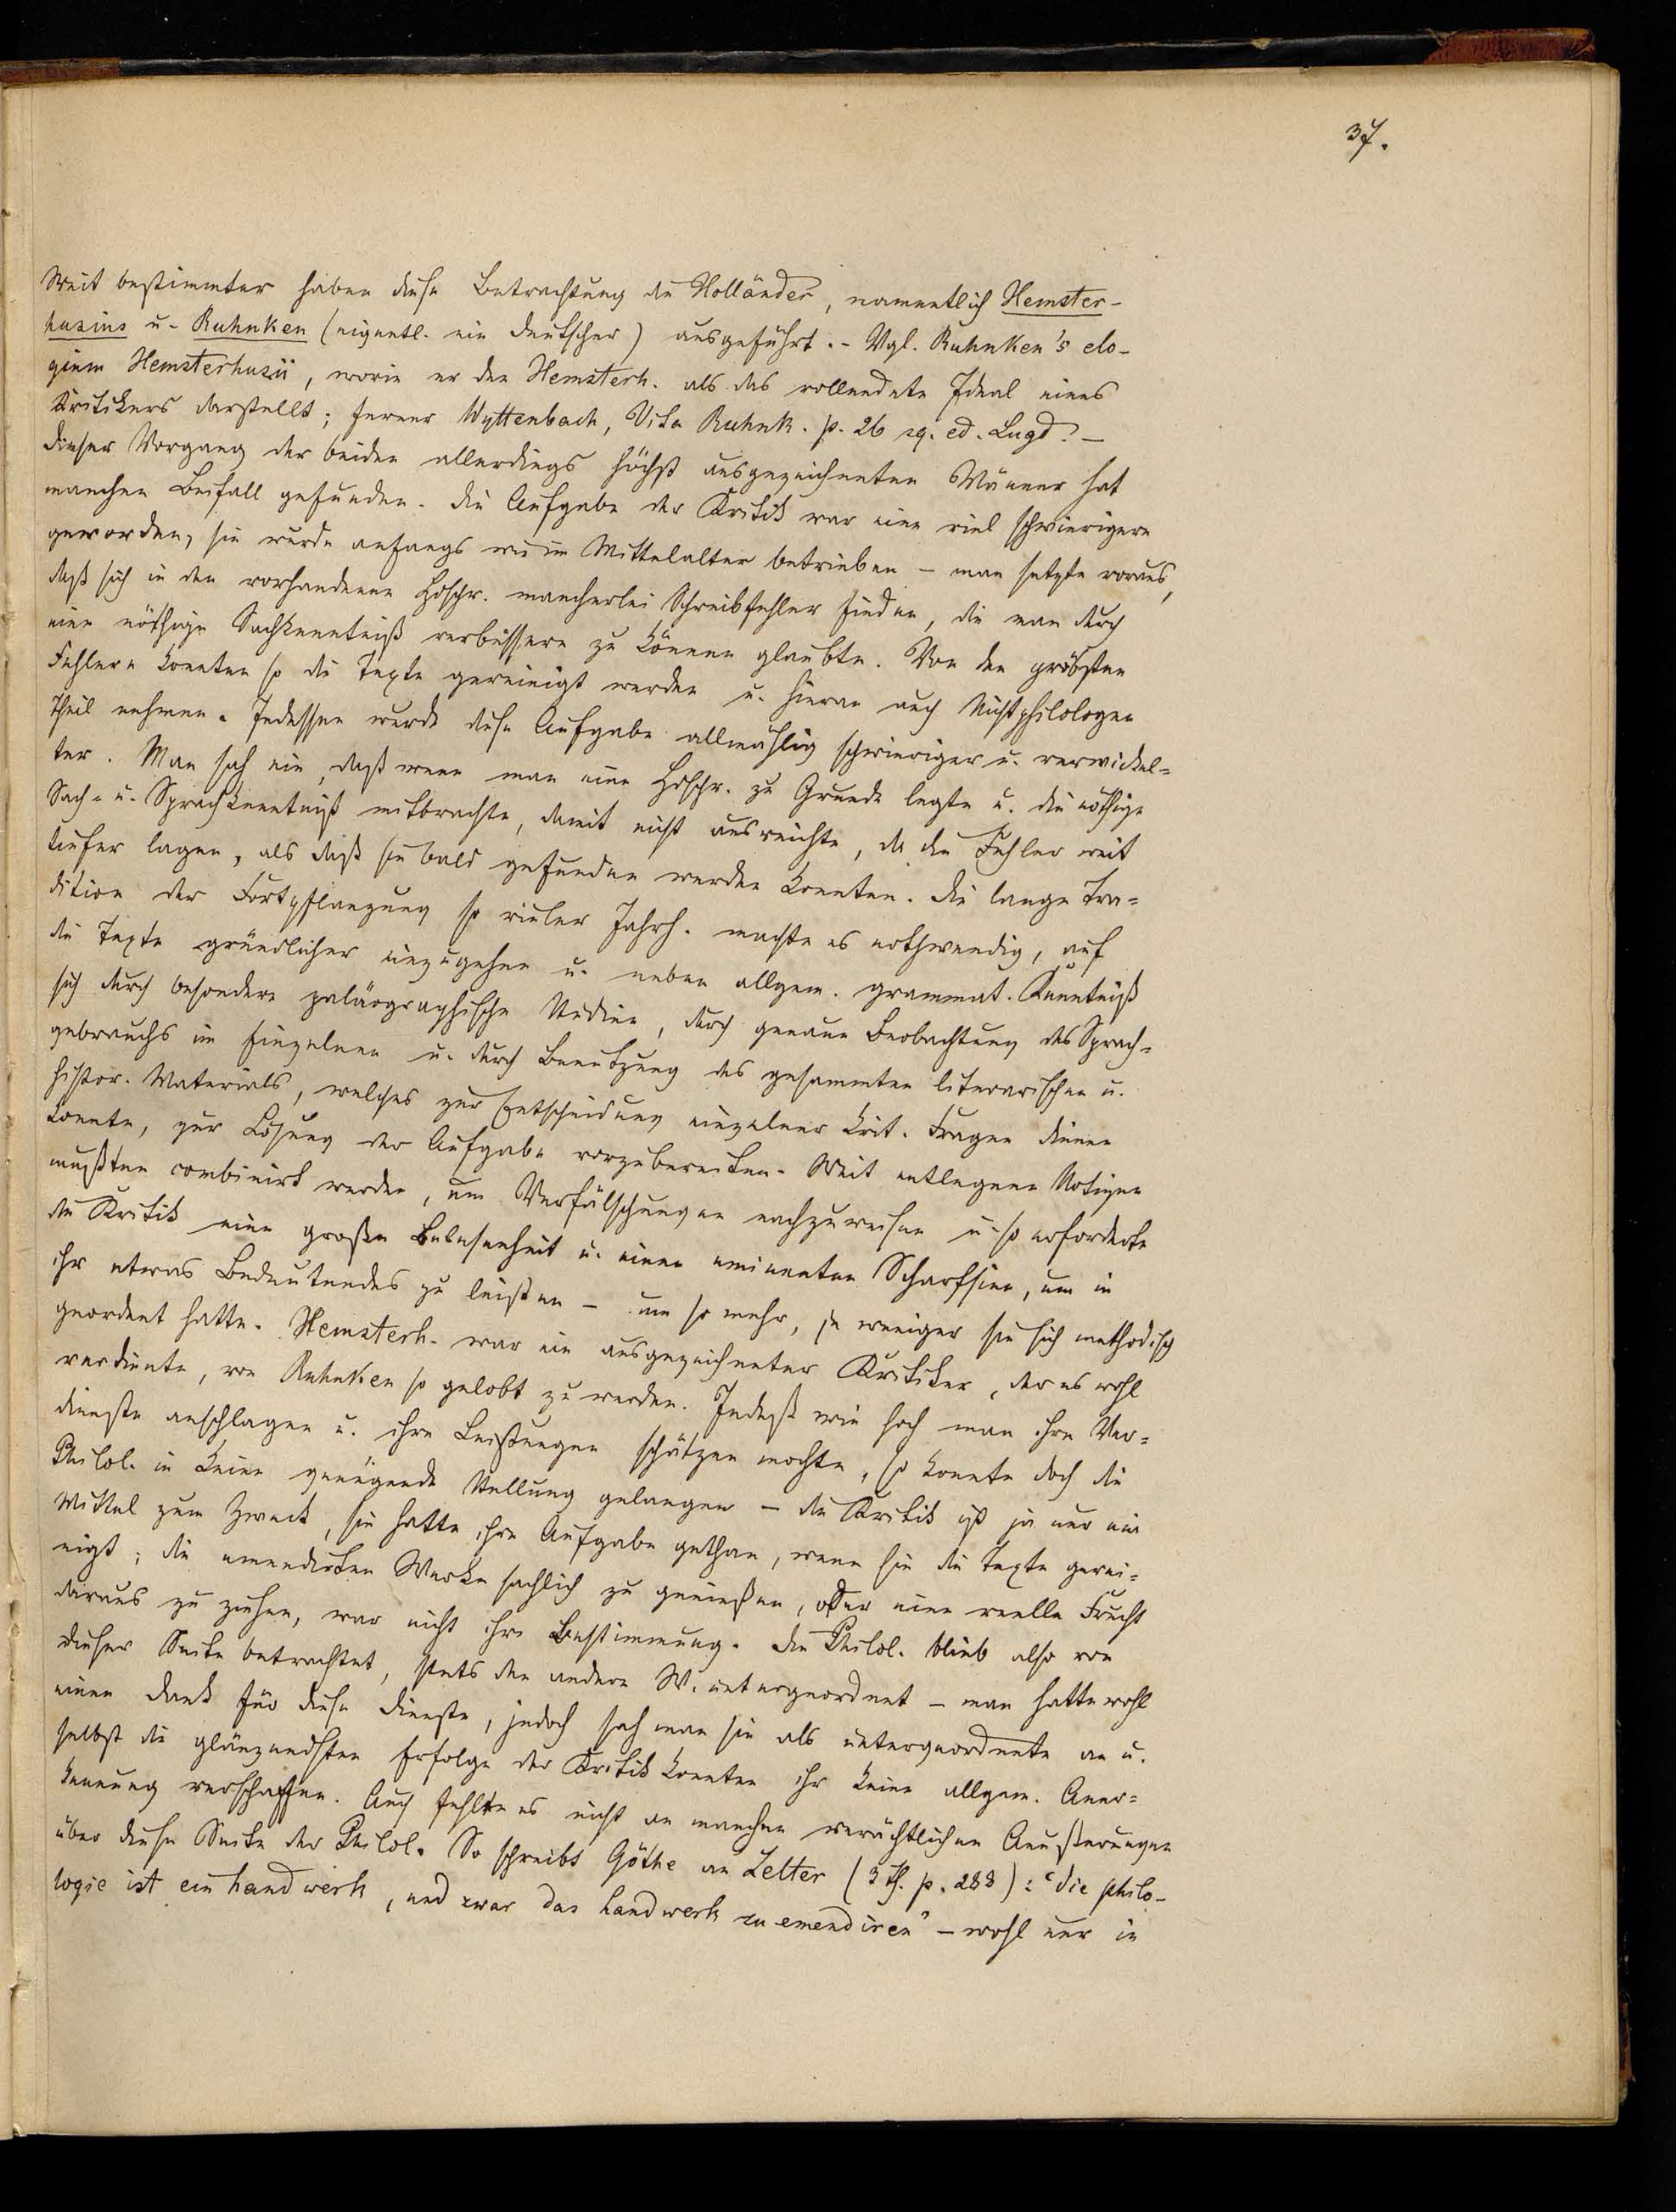 37.
Weit bestimmter haben diese Betrachtung die Holländer, namentlich Hemster-
husius u. Ruhnken (eigentl. ein Deutscher) ausgeführt. - Vgl. Ruhnken's elo-
gium Hemsterhusii, worin er den Hemsterh. als das vollendete Ideal eines
Kritikers darstellt; ferner Wyttenbach, Vita Ruhnk. p. 26 sq. ed. Lugd. -
Dieser Vorgang der beiden allerdings höchst ausgezeichneten Männer hat
manchen Beifall gefunden. Die Aufgabe der Kritik war eine viel schwierigere
geworden, sie wurde anfangs wie im Mittelalter betrieben - man setzte voraus,
daß sich in den vorhandenen Hdschr. mancherlei Schreibfehler finden, die man durch
eine nöthige Sachkenntniß verbessern zu können glaubte. Von den gröbsten
Fehlern konnten so die Texte gereinigt werden u. hieran auch Nichtphilologen
Theil nehmen. Indessen wurde diese Aufgabe allmählig schwieriger u. verwickel-
ter. Man sah ein, daß wenn man eine Hdschr. zu Grunde legte u. die nöthige
Sach- u. Sprachkenntniß mitbrachte, damit nicht ausreichte, da die Fehler weit
tiefer lagen, als daß sie bald gefunden werden konnten. Die lange Tra-
dition der Fortpflanzung so vieler Jahrh. machte es nothwendig, auf
die Texte gründlicher einzugehen u. neben allgem. grammat. Kenntniß
sich durch besondere paläographische Studien, durch genaue Beobachtung des Sprach-
gebrauchs im Einzelnen u. durch Benutzung des gesammten literarischen u.
histor. Materials, welches zur Entscheidung einzelner krit. Fragen dienen
konnte, zur Lösung der Aufgabe vorzubereiten. Weit entlegene Notizen
mußten combinirt werden, um Verfälschungen nachzuweisen u. so erforderte
die Kritik eine große Belesenheit u. einen eminenten Scharfsinn, um in
ihr etwas Bedeutendes zu leisten - um so mehr, je weniger sie sich methodisch
geordnet hatte. Hemsterh. war ein ausgezeichneter Kritiker, der es wohl
verdiente, von Ruhnken so gelobt zu werden. Indeß wie hoch man ihre Ver-
dienste anschlagen u. ihre Leistungen schätzen mochte, so konnte doch die
Philol. in keine genügende Stellung gelangen - die Kritik ist ja nur ein
Mittel zum Zweck, sie hatte ihre Aufgabe gethan, wenn sie die Texte gerei-
nigt; die emendirten Werke sachlich zu genießen, oder eine reelle Frucht
daraus zu ziehen, war nicht ihre Bestimmung. Die Philol. blieb also von
dieser Seite betrachtet, stets den andern W. untergeordnet - man hatte wohl
einen Dank für diese Dienste, jedoch sah man sie als untergeordnete an u.
selbst die glänzendsten Erfolge der Kritik konnten ihr keine allgem. Aner-
kennung verschaffen. Auch fehlte es nicht an manchen verächtlichen Aeußerungen
über diese Seite der Philol. So schreibt Göthe an Zelter (3 Th. p. 288): "die philo-
logie ist ein handwerk, und zwar das handwerk zu emendiren" - wohl nur in